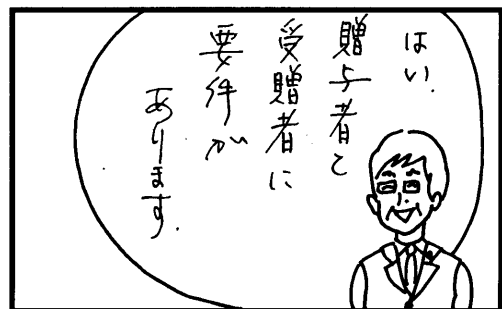 はい.
贈与者と
受贈者に
要件が
あります.